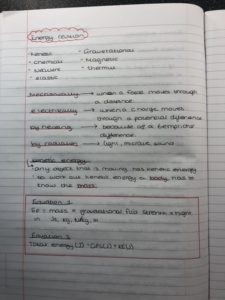 Energy revision
- Kenetic - Gravetational
- chemical - Magnetic
- Nuclure - thermal
- elastic
Mechanically → when a force moves through
a distance.
electrically → when a charge moves
through a potential difference
by heating → because of a temperture
difference.
by radiation → light, microwave, sound
kenetic energy -
any object that is moving has kenetic energy
to work out kenetic energy a body, has to
know the mass.
Equation 1
Ep = mass × gravitational field strength × height
in J, kg, N/kg, m
Equation 2
Total energy (J) =